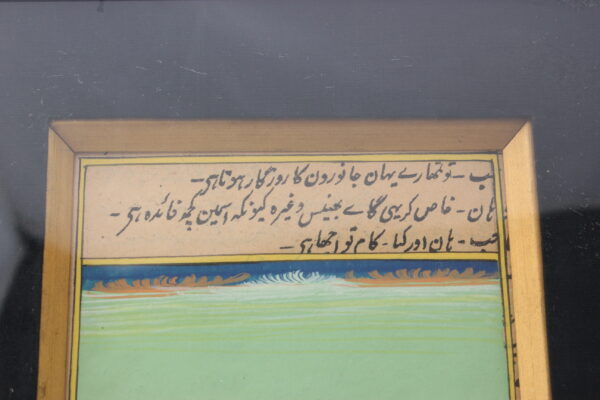 جب - تو تمھارے یہان جانورون کا روزگار ہوتا ہی -
ہان - خاص کر یہی گاے بھینس وغیرہ کیونکہ اسمین کچھ فائدہ ہی -
جب - ہان اور کیا - کام تو اچھا ہی -